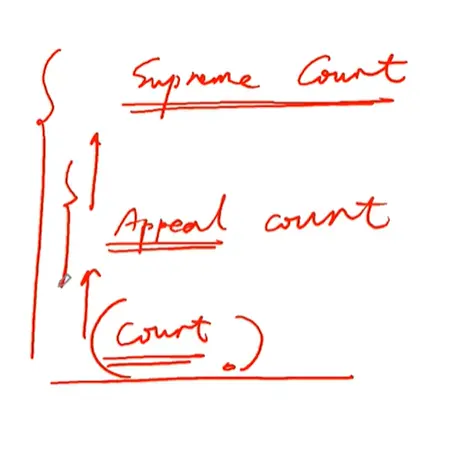 Supreme Court
Appeal court
(Court.)